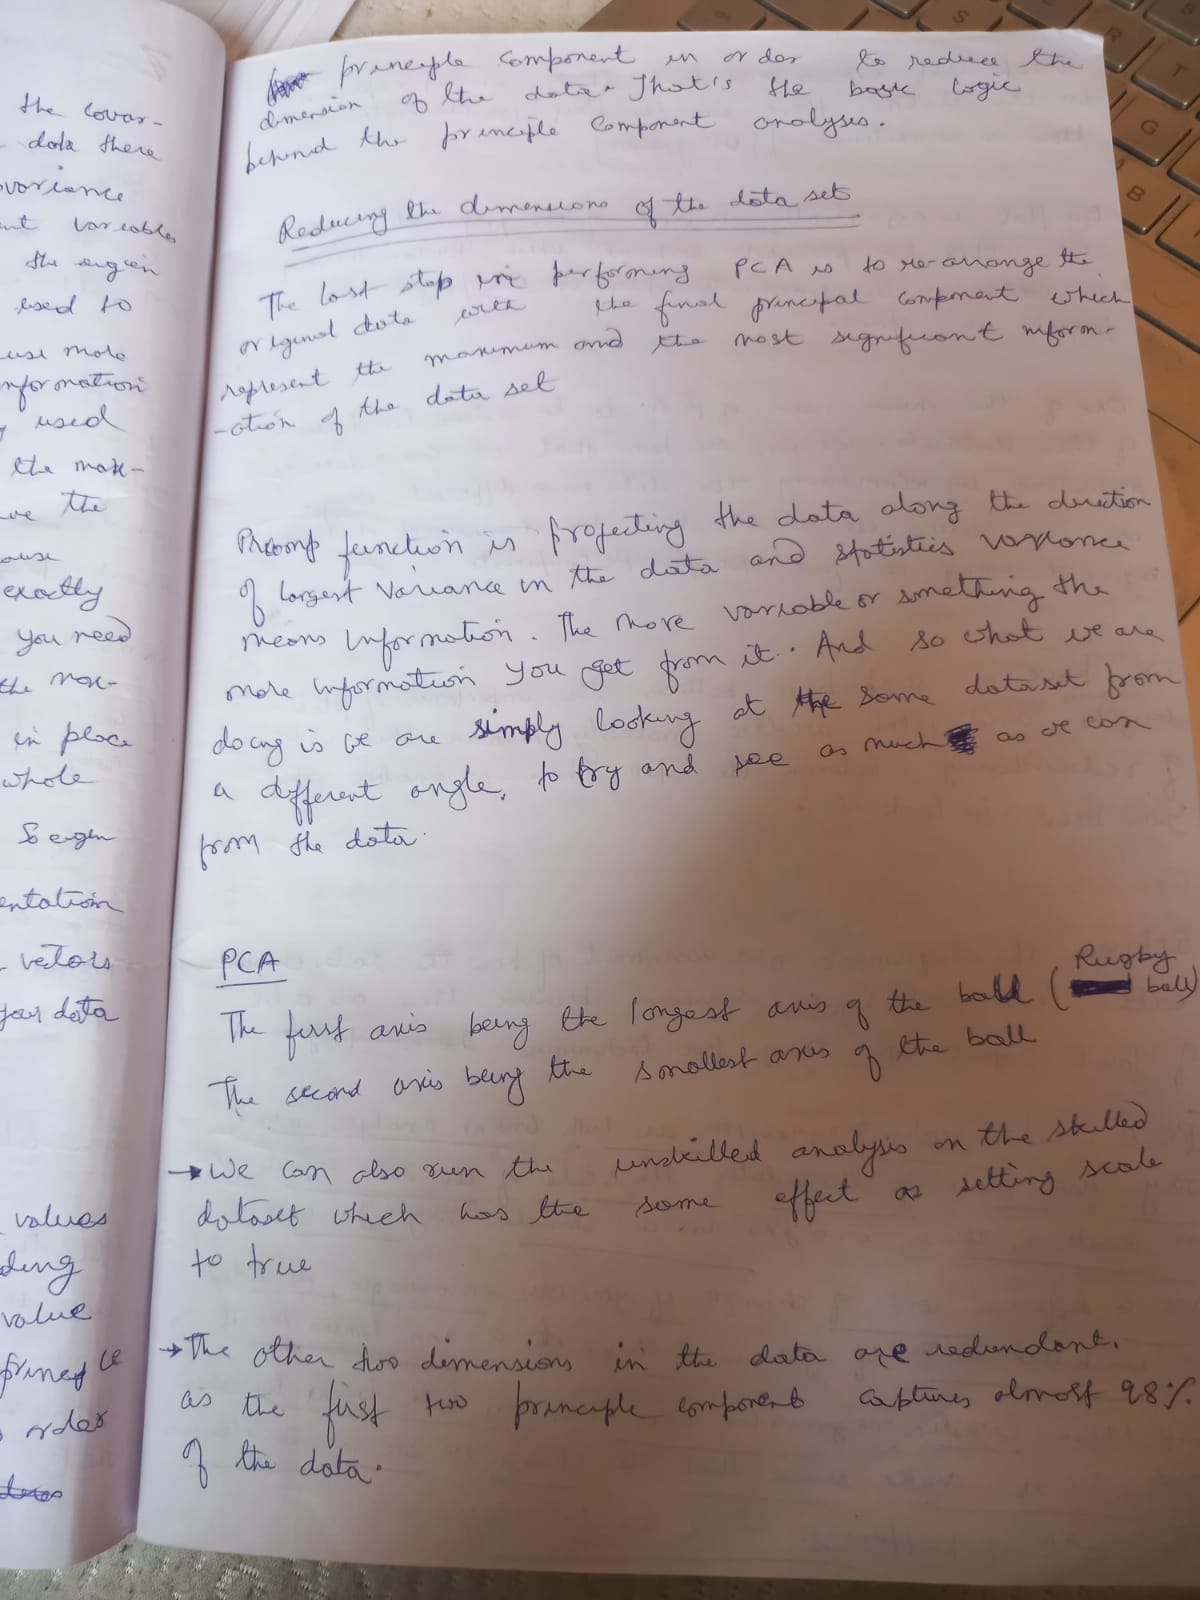 the covar-
data there
variance
variables
the eigen
used to
use more
information
used
the max-
the
exactly
you need
the max-
in place
whole
So eigen
entation
vectors
your data
values
ding
value
princip le
order
principle component in order to reduce the
dimension of the data. That's the basic logic
behind the principle component analyses.
Reducing the dimensions of the data set
The last step in performing PCA is to re-arrange the
original data with the final principal component which
represent the maximum and the most significant inform-
-ation of the data set
Prcomp function is projecting the data along the direction
of largest variance in the data and statistics variance
means information. The more variable or something the
more information you get from it. And so what we are
doing is we are simply looking at the same dataset from
a different angle, to try and see as much as we can
from the data.
PCA
The first axis being the longest axis of the ball (Rugby ball)
The second axis being the smallest axis of the ball
→ We can also run the unskilled analysis on the skilled
dataset which has the same effect as setting scale
to true
→ The other two dimensions in the data are redundant.
as the first two principle component captures almost 98%.
of the data.